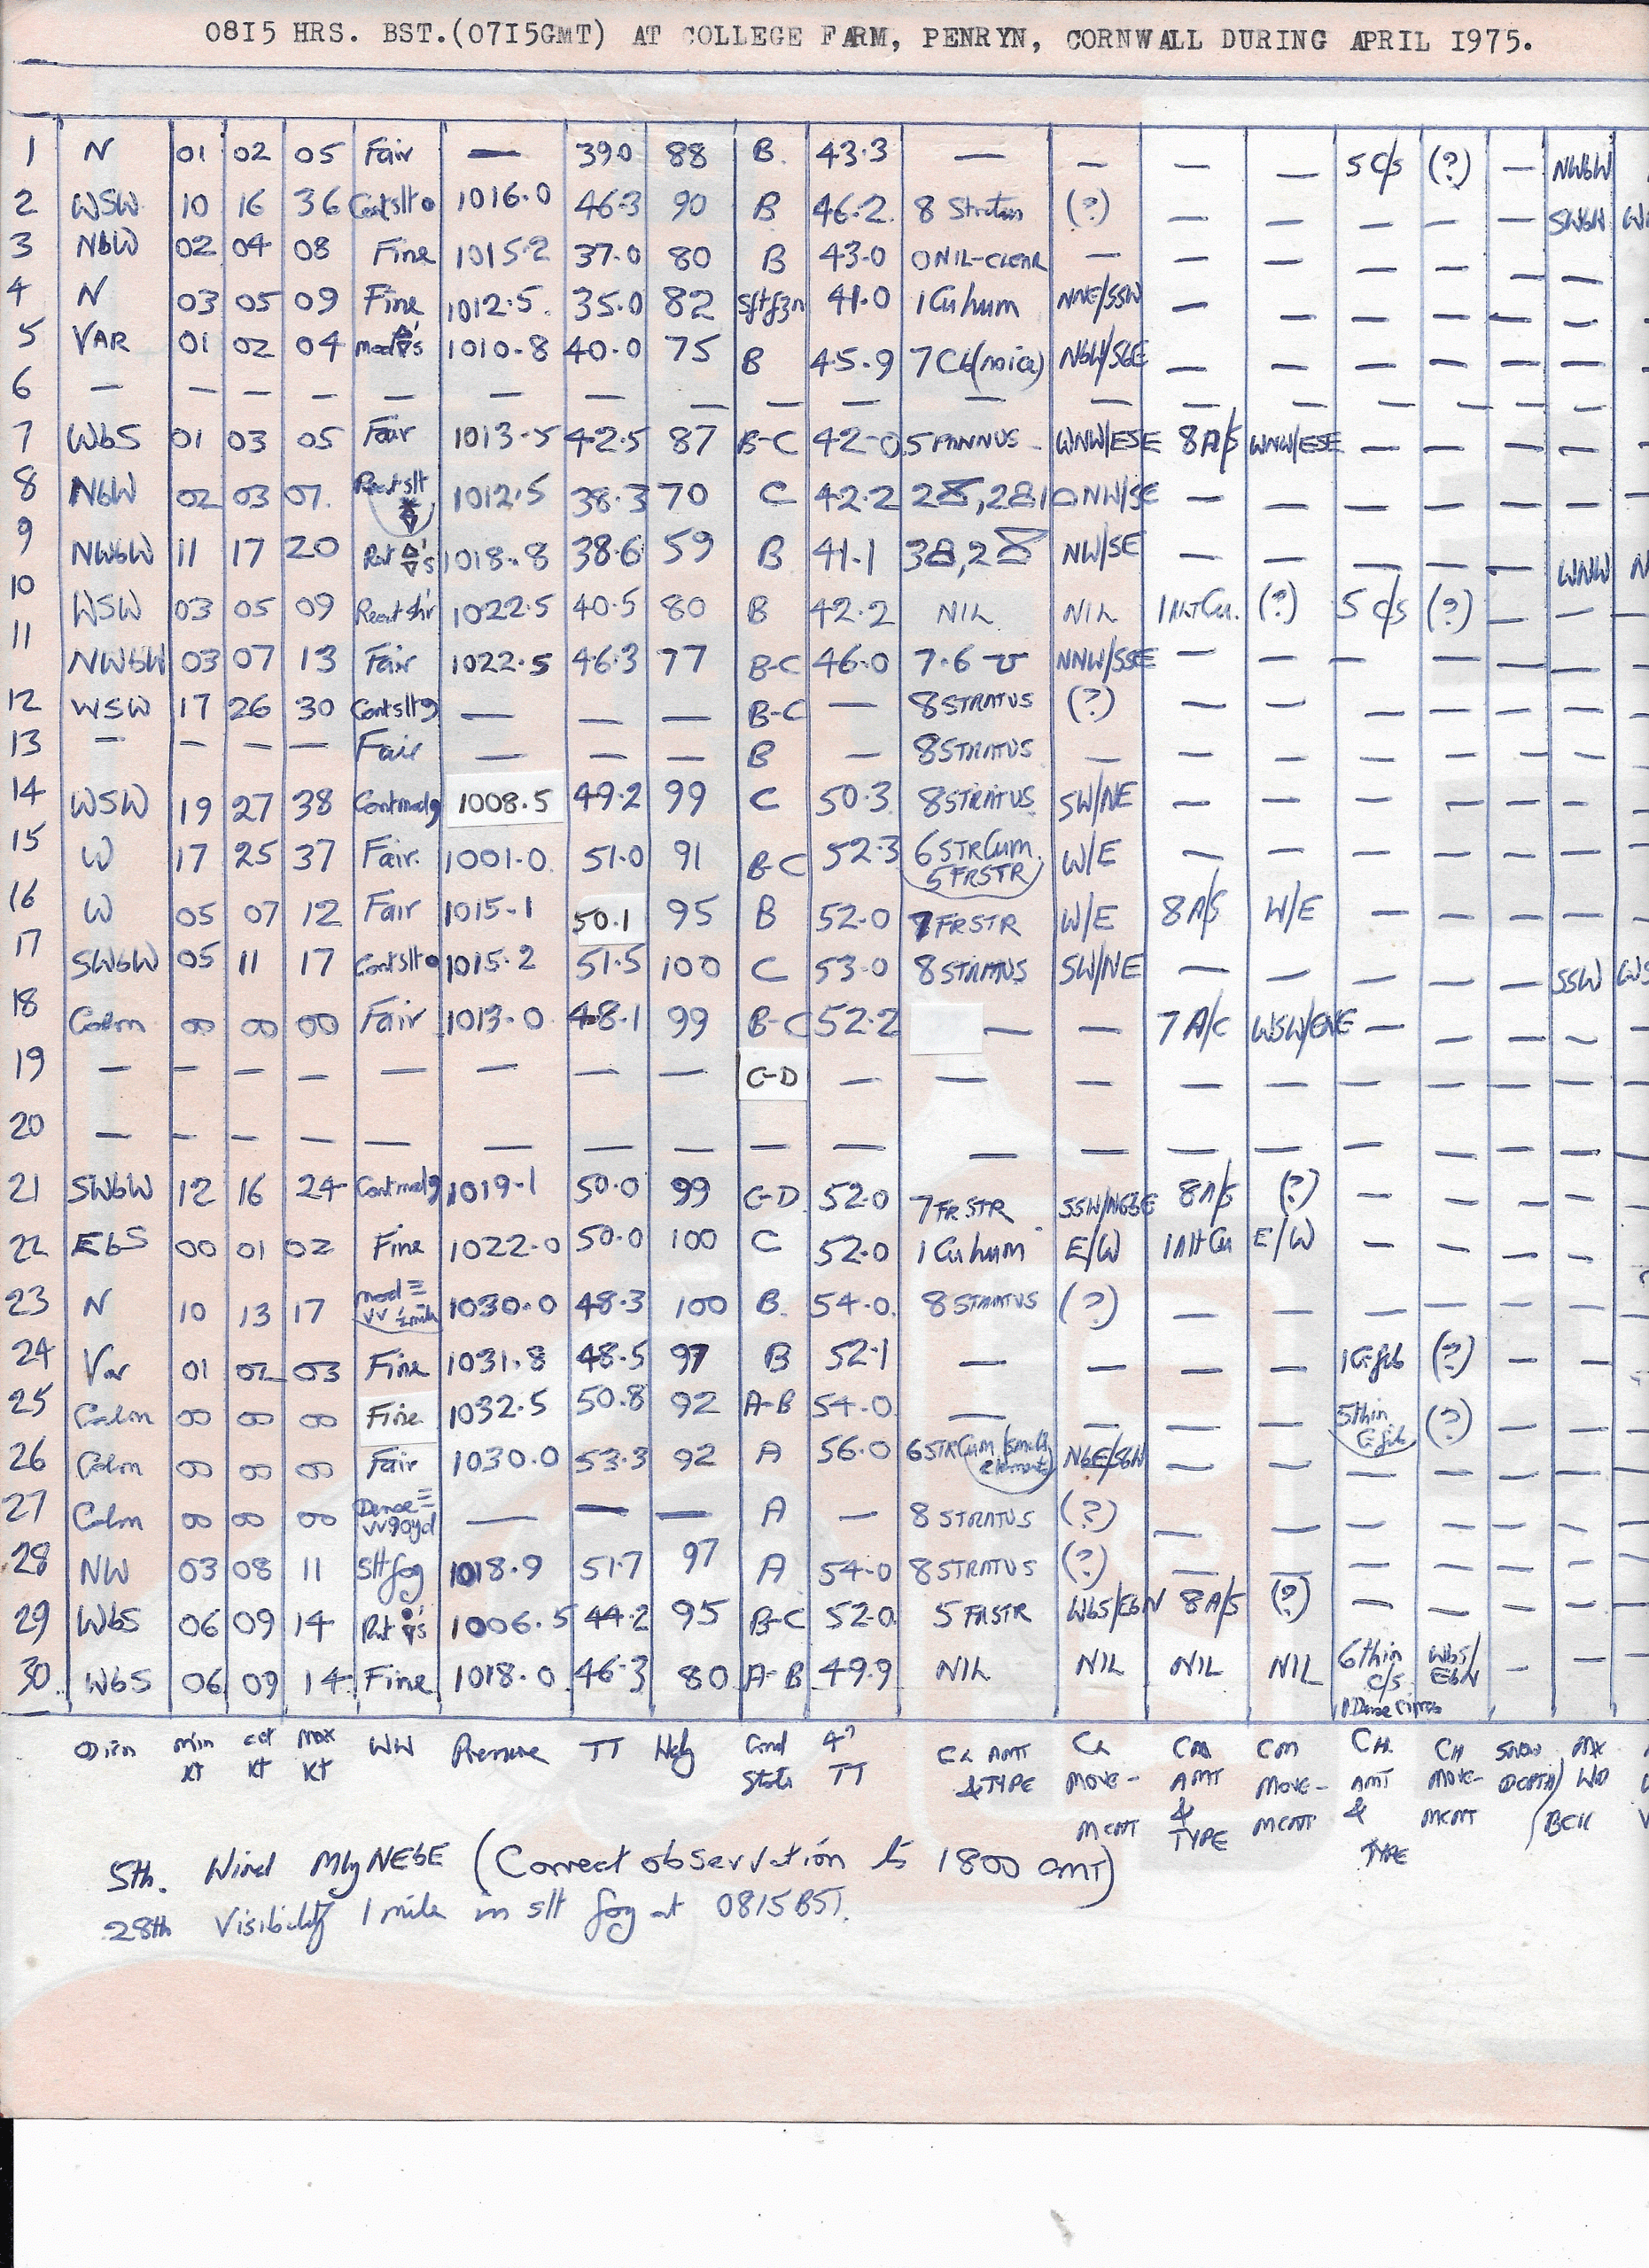 0815 HRS. BST.(0715GMT) AT COLLEGE FARM, PENRYN, CORNWALL DURING APRIL 1975.
1 N 01 02 05 Fair — 39.0 88 B. 43.3 — — — — 5 C/S (?) — NWbW
2 WSW 10 16 36 Contslt● 1016.0 46.3 90 B 46.2 8 Stratus (?) — — — — — SWbW
3 NbW 02 04 08 Fine 1015.2 37.0 80 B 43.0 0 NIL-CLEAR — — — — — — —
4 N 03 05 09 Fine 1012.5 35.0 82 Sftfzn 41.0 1 Cu hum NNE/SSW — — — — — —
5 VAR 01 02 04 mod 's 1010.8 40.0 75 B 45.9 7 Cb NbW/SbE — — — — — —
6 — — — — — — — — — — — — — — — — — —
7 WbS 01 03 05 Fair 1013.5 42.5 87 B-C 42.0 5 PANNUS WNW/ESE 8 A/S WNW/ESE — — — —
8 NbW 02 03 07 Recntslt 1012.5 38.3 70 C 42.2 NW/SE — — — — — —
9 NWbW 11 17 20 Rnt 's 1018.8 38.6 59 B 41.1 NW/SE — — — — — WNW
10 WSW 03 05 09 Recnt 1022.5 40.5 80 B 42.2 NIL NIL 1 Alt Cu. (?) 5 C/S (?) — —
11 NWbW 03 07 13 Fair 1022.5 46.3 77 B-C 46.0 7.6 NNW/SSE — — — — — —
12 WSW 17 26 30 Contslt9 — — — B-C — 8 STRATUS (?) — — — — — —
13 — — — — Fair — — — B — 8 STRATUS — — — — — — —
14 WSW 19 27 38 Contmod9 1008.5 49.2 99 C 50.3 8 STRATUS SW/NE — — — — — —
15 W 17 25 37 Fair. 1001.0 51.0 91 B-C 52.3 6 STRCum. W/E — — — — — —
5 FRSTR
16 W 05 07 12 Fair 1015.1 50.1 95 B 52.0 7 FRSTR W/E 8 A/S W/E — — — —
17 SWbW 05 11 17 Contslt● 1015.2 51.5 100 C 53.0 8 STRATUS SW/NE — — — — — SSW
18 Calm 00 00 00 Fair 1013.0 48.1 99 B-C 52.2 — — 7 A/C WSW/ENE — — — —
19 — — — — — — — — C-D — — — — — — — — —
20 — — — — — — — — — — — — — — — — — —
21 SWbW 12 16 24 Contmod9 1019.1 50.0 99 C-D 52.0 7 FR STR 8 A/S (?) — — — —
22 EbS 00 01 02 Fine 1022.0 50.0 100 C 52.0 1 Cu hum E/W 1 Alt Cu E/W — — — —
23 N 10 13 17 mod ≡ 1030.0 48.3 100 B. 54.0 8 STRATUS (?) — — — — — —
VV ½mile
24 Var 01 02 03 Fine 1031.8 48.5 97 B 52.1 — — — — 1 Ci fib (?) — —
25 Calm 00 00 00 Fine 1032.5 50.8 92 A-B 54.0 — — — — 5 thin (?) — —
Ci fib
26 Calm 00 00 00 Fair 1030.0 53.3 92 A 56.0 6 STRCum (small NbE/SbW — — — — — —
elements)
27 Calm 00 00 00 Dense ≡ — — — A — 8 STRATUS (?) — — — — — —
VV90yd
28 NW 03 08 11 Slt fog 1018.9 51.7 97 A 54.0 8 STRATUS (?) — — — — — —
29 WbS 06 09 14 Rnt 's 1006.5 44.2 95 B-C 52.0 5 FRSTR WbS/EbN 8 A/S (?) — — — —
30. WbS 06 09 14 Fine 1018.0 46.3 80 A-B 49.9 NIL NIL NIL NIL 6 thin WbS/ — —
C/S EbN
1 Dense Cirrus
Dirn min Kt Kt max Kt WW Pressure TT Hdy Gnd State 4" TT CL AMT & TYPE CL MOVE-MENT CM AMT & TYPE CM MOVE-MENT CH AMT & TYPE CH MOVE-MENT SNOW DEPTH MX WD
5th. Wind Mly NEbE (Correct observation is 1800 GMT)
28th Visibility 1 mile in slt fog at 0815 BST.